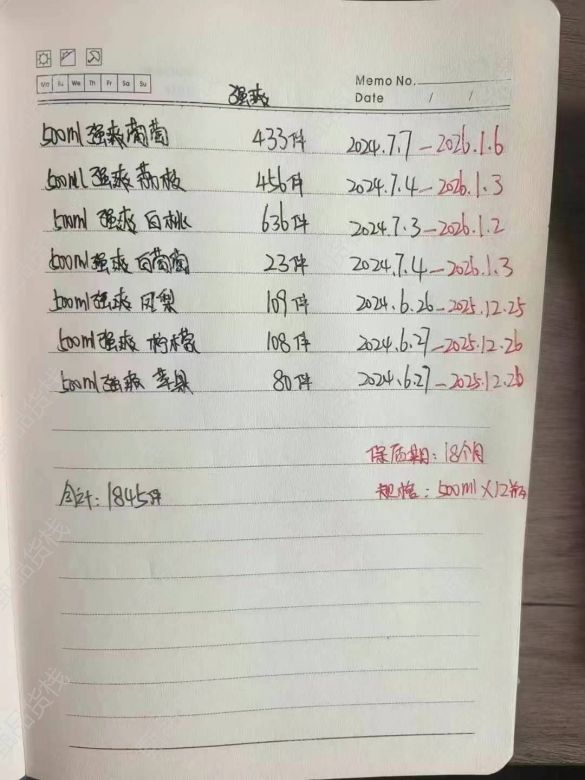 Mo Tu We Th Fr Sa Su
Memo No.
Date / /
强爽
500ml 强爽葡萄 433件 2024.7.7-2026.1.6
500ml 强爽荔枝 456件 2024.7.4-2026.1.3
500ml 强爽 白桃 636件 2024.7.3-2026.1.2
500ml 强爽 白葡萄 23件 2024.7.4-2026.1.3
500ml 强爽 凤梨 109件 2024.6.26-2025.12.25
500ml 强爽 柠檬 108件 2024.6.27-2025.12.26
500ml 强爽 苹果 80件 2024.6.27-2025.12.26
保质期:18个月
合计:1845件
规格:500ml×12瓶